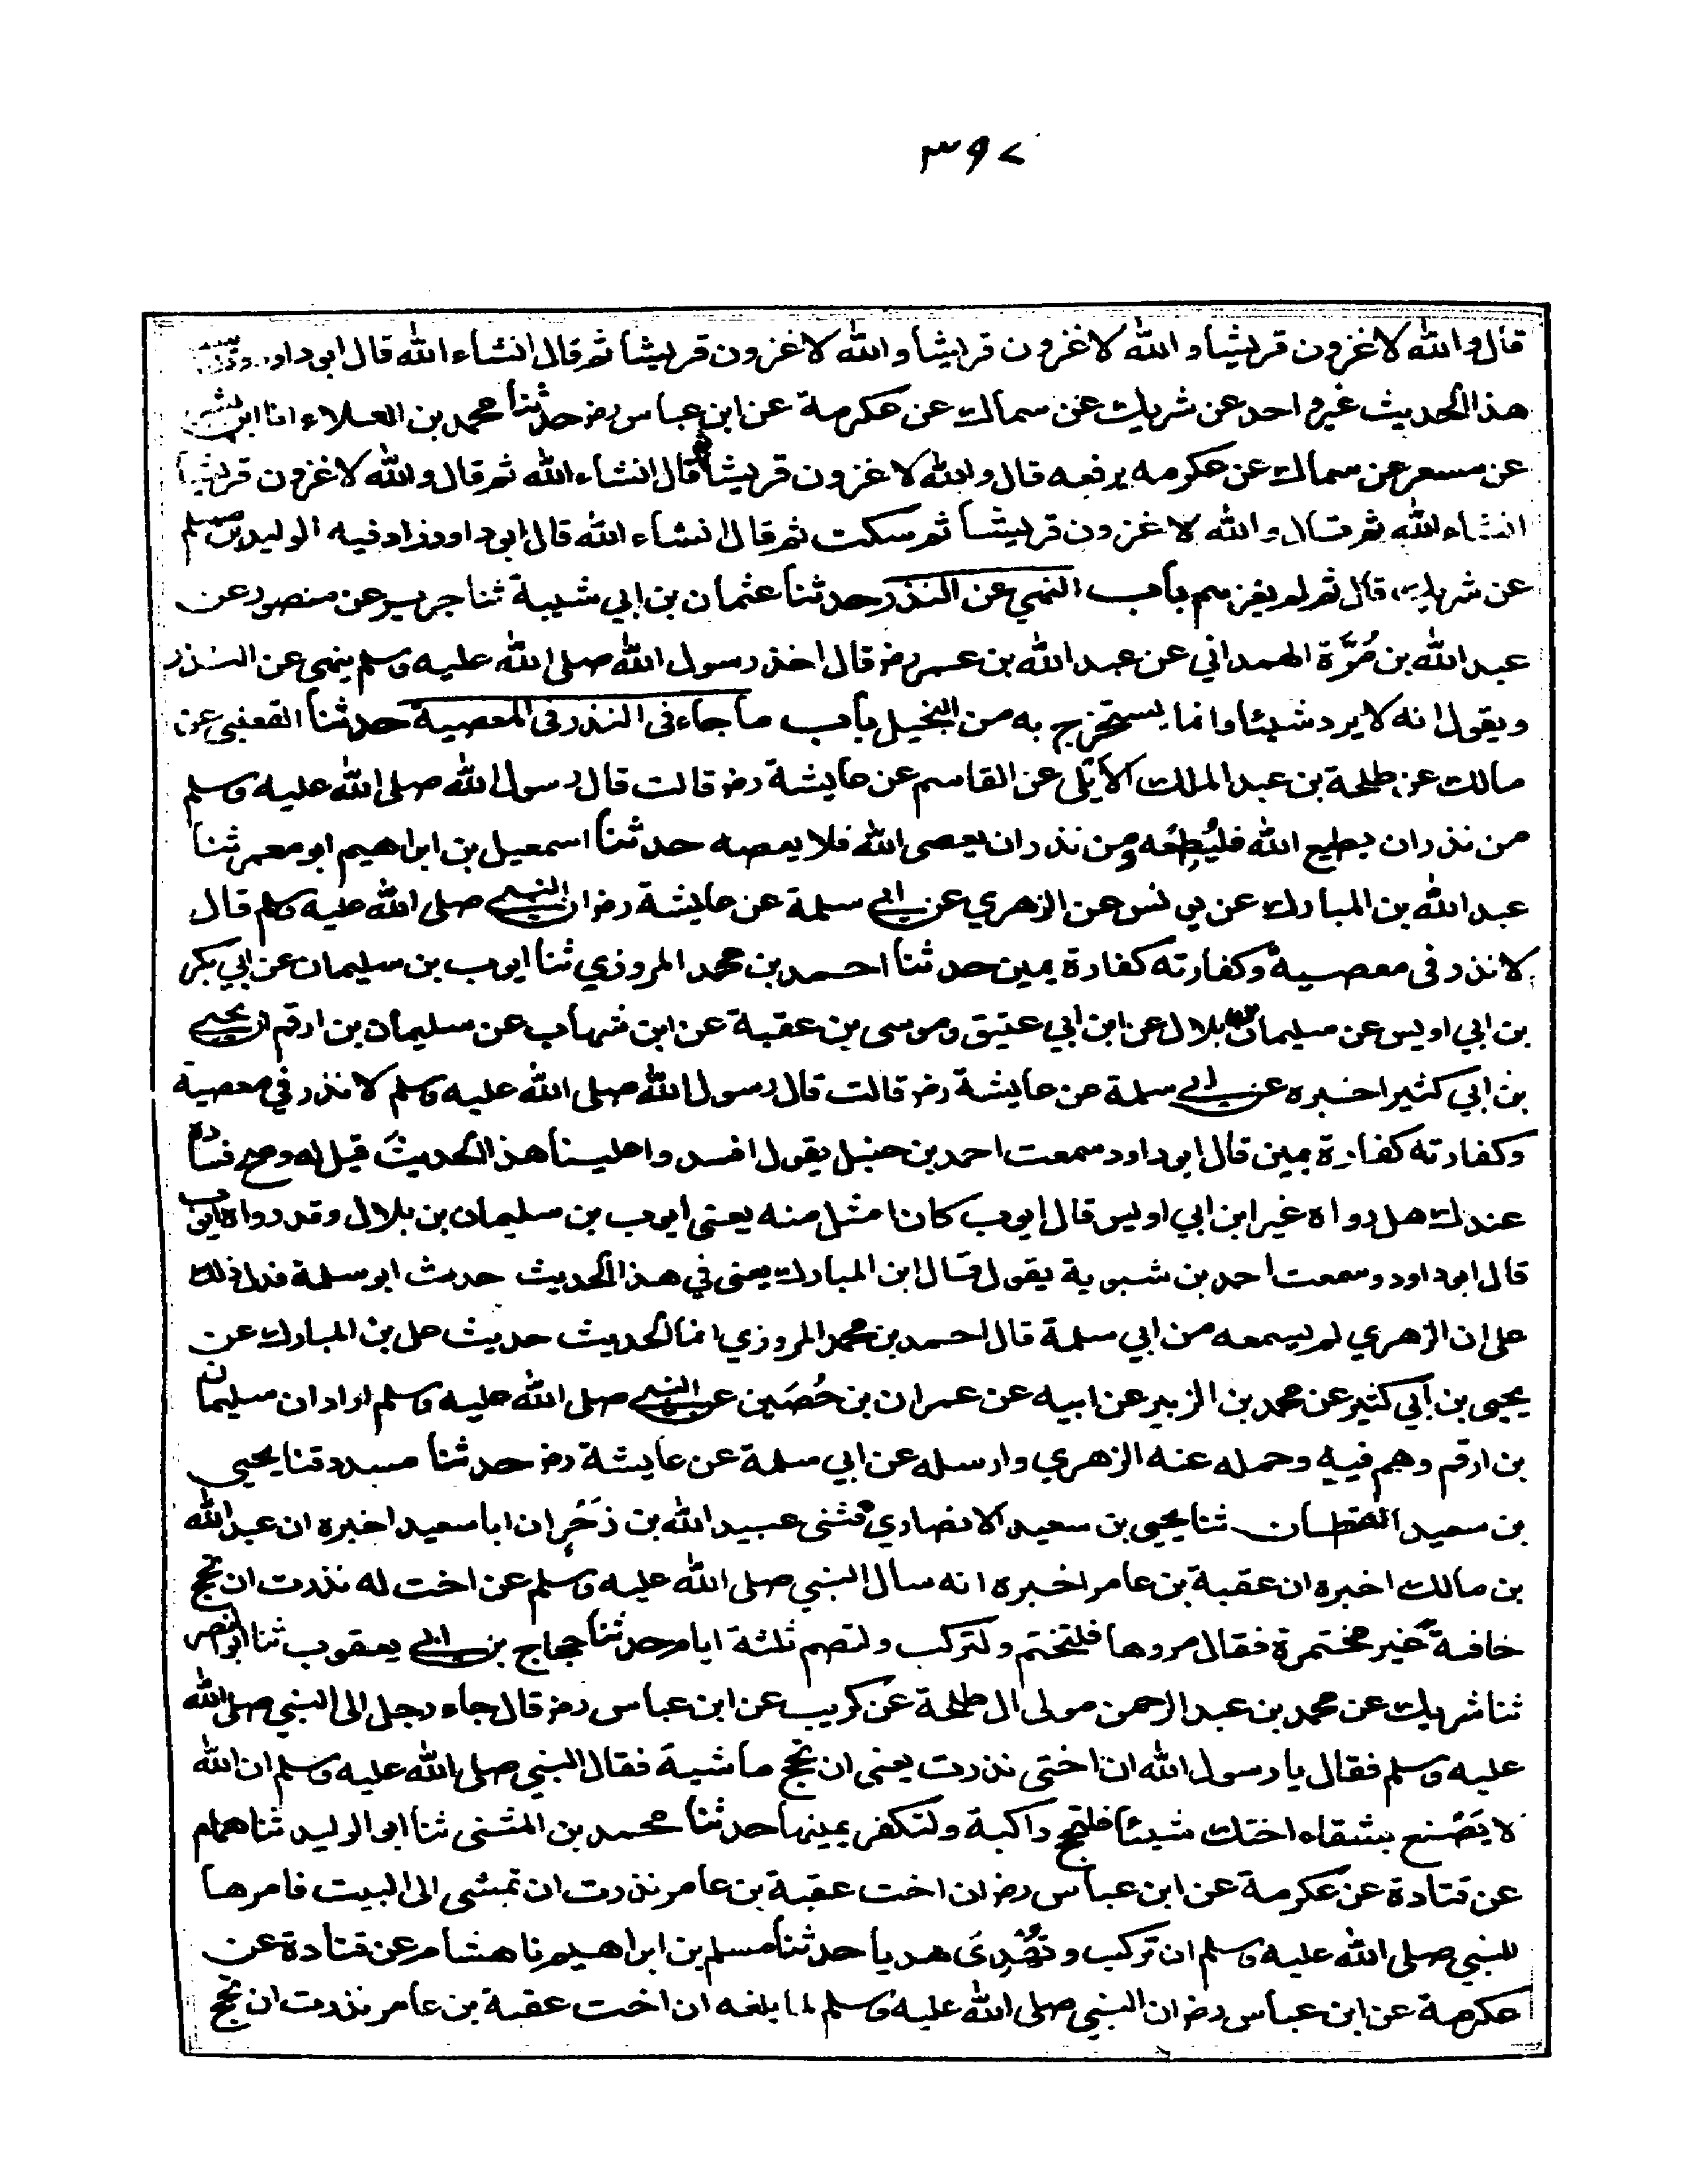 ٣٩٧
قال والله لاغزون قريشا والله لاغزون قريشا والله لاغزون قريشا ثم قال انشاء الله قال ابو داود وقد
هذا الحديث غير واحد عن شريك عن سماك عن عكرمة عن ابن عباس رض حدثنا محمد بن العلاء انا ابن بشر
عن مسعر عن سماك عن عكرمه يرفعه قال والله لاغزون قريشا ثم قال انشاء الله ثم قال والله لاغزون قريشا
انشاء الله ثم قال والله لاغزون قريشا ثم سكت ثم قال انشاء الله قال ابو داود زاد فيه الوليد بن مسلم
عن شريك قال ثم لم يغزهم باب النهي عن النذر حدثنا عثمان بن ابي شيبة ثنا جرير عن منصور عن
عبد الله بن مُرَّة الهمداني عن عبد الله بن عمر رض قال اخذ رسول الله صلى الله عليه وسلم ينهى عن النذر
ويقول انه لا يرد شيئا وانما يستخرج به من البخيل باب ما جاء في النذر في المعصية حدثنا القعنبي عن
مالك عن طلحة بن عبد الملك الايلى عن القاسم عن عايشة رض قالت قال رسول الله صلى الله عليه وسلم
من نذر ان يطيع الله فليُطِعْه ومن نذر ان يعصى الله فلا يعصه حدثنا اسمعيل بن ابراهيم ابو معمر ثنا
عبد الله بن المبارك عن يونس عن الزهري عن ابي سلمة عن عايشة رض ان النبي صلى الله عليه وسلم قال
لا نذر في معصية وكفارته كفارة يمين حدثنا احمد بن محمد المروزي ثنا ايوب بن سليمان عن ابي بكر
بن ابي اويس عن سليمان بن بلال عن ابن ابي عتيق وموسى بن عقبة عن ابن شهاب عن سليمان بن ارقم ان يحيى
بن ابي كثير اخبره عن ابي سلمة عن عايشة رض قالت قال رسول الله صلى الله عليه وسلم لا نذر في معصية
وكفارته كفارة يمين قال ابو داود سمعت احمد بن حنبل يقول افسدوا علينا هذا الحديث قيل له وصح فساده
عندك هل رواه غير ابن ابي اويس قال ايوب كان امثل منه يعنى ايوب بن سليمان بن بلال وقد رواه ايوب
قال ابو داود وسمعت احمد بن شبوية يقول قال ابن المبارك يعنى في هذا الحديث حدث ابو سلمة فدل ذلك
على ان الزهري لم يسمعه من ابي سلمة قال احمد بن محمد المروزي انما الحديث حديث على بن المبارك عن
يحيى بن ابي كثير عن محمد بن الزبير عن ابيه عن عمران بن حُصَين عن النبي صلى الله عليه وسلم اراد ان سليمان
بن ارقم وهم فيه وحمله عنه الزهري وارسله عن ابي سلمة عن عايشة رض حدثنا مسدد قنا يحيى
بن سعيد القطان ثنا يحيى بن سعيد الانصاري قثنى عبيد الله بن زَحْرٍ ان ابا سعيد اخبره ان عبد الله
بن مالك اخبره ان عقبة بن عامر اخبره انه سال النبي صلى الله عليه وسلم عن اخت له نذرت ان تحج
حافية غير مختمرة فقال مروها فلتختم ولتركب ولتصم ثلثة ايام حدثنا حجاج بن ابي يعقوب ثنا ابو النصر
ثنا شريك عن محمد بن عبد الرحمن مولى ال طلحة عن كريب عن ابن عباس رض قال جاء رجل الى النبي صلى الله
عليه وسلم فقال يا رسول الله ان اختى نذرت يعنى ان تحج ماشية فقال النبي صلى الله عليه وسلم ان الله
لا يَصْنع بشقاء اختك شيئا فلتحج راكبة ولتكفر يمينها حدثنا محمد بن المثنى ثنا ابو الوليد ثنا همام
عن قتادة عن عكرمة عن ابن عباس رض ان اخت عقبة بن عامر نذرت ان تمشى الى البيت فامرها
النبي صلى الله عليه وسلم ان تركب وتُهْدِىَ هديا حدثنا مسلم بن ابراهيم نا هشام عن قتادة عن
عكرمة عن ابن عباس رض ان النبي صلى الله عليه وسلم لما بلغه ان اخت عقبة بن عامر نذرت ان تحج